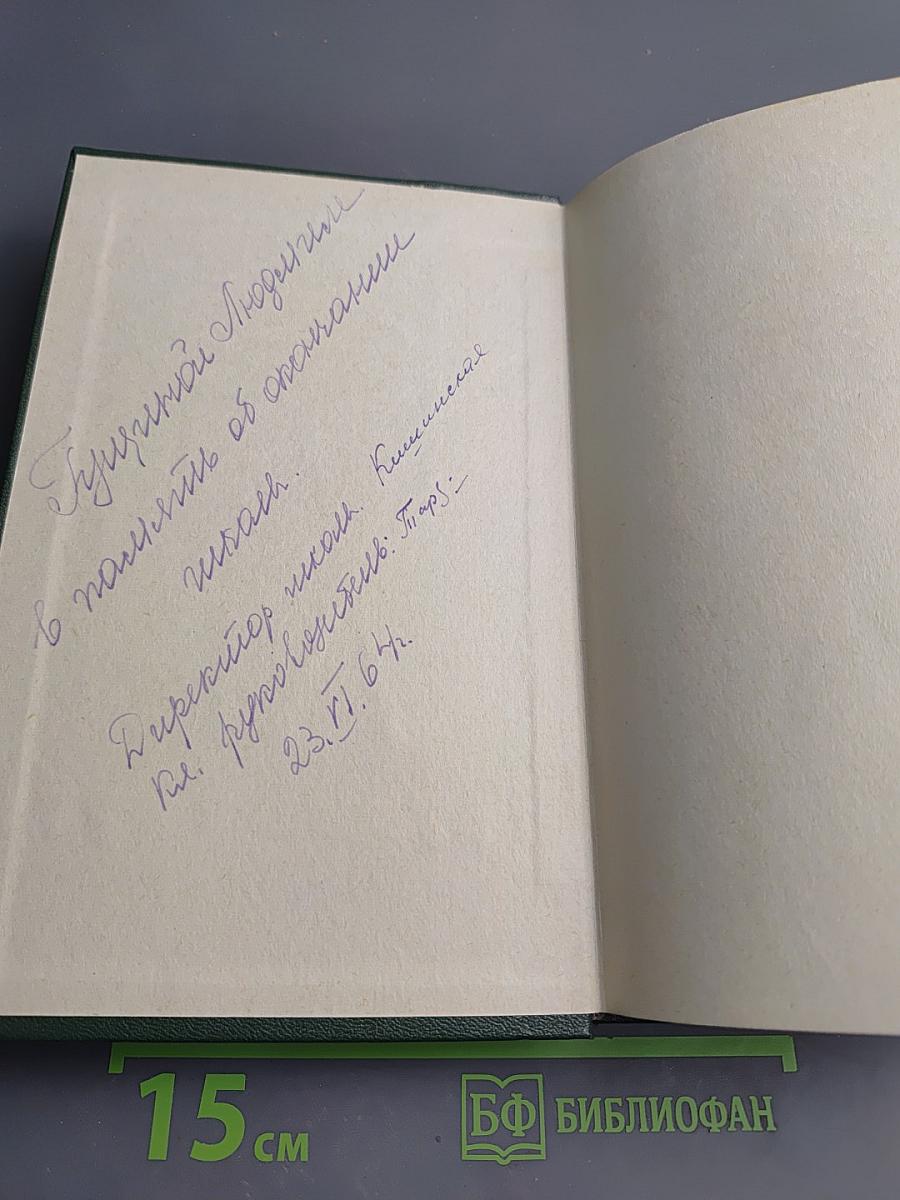 Гущиной Людмиле
в память об окончании
школы.
Директор школы. Кишинская
кл. руководитель:
23.VI.64г.
15 см
БФ БИБЛИОФАН